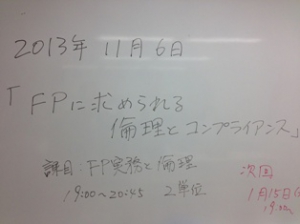 2013年 11月6日
「FPに求められる
倫理とコンプライアンス」
課目:FP実務と倫理
19:00～20:45 2単位
次回
1月15日(